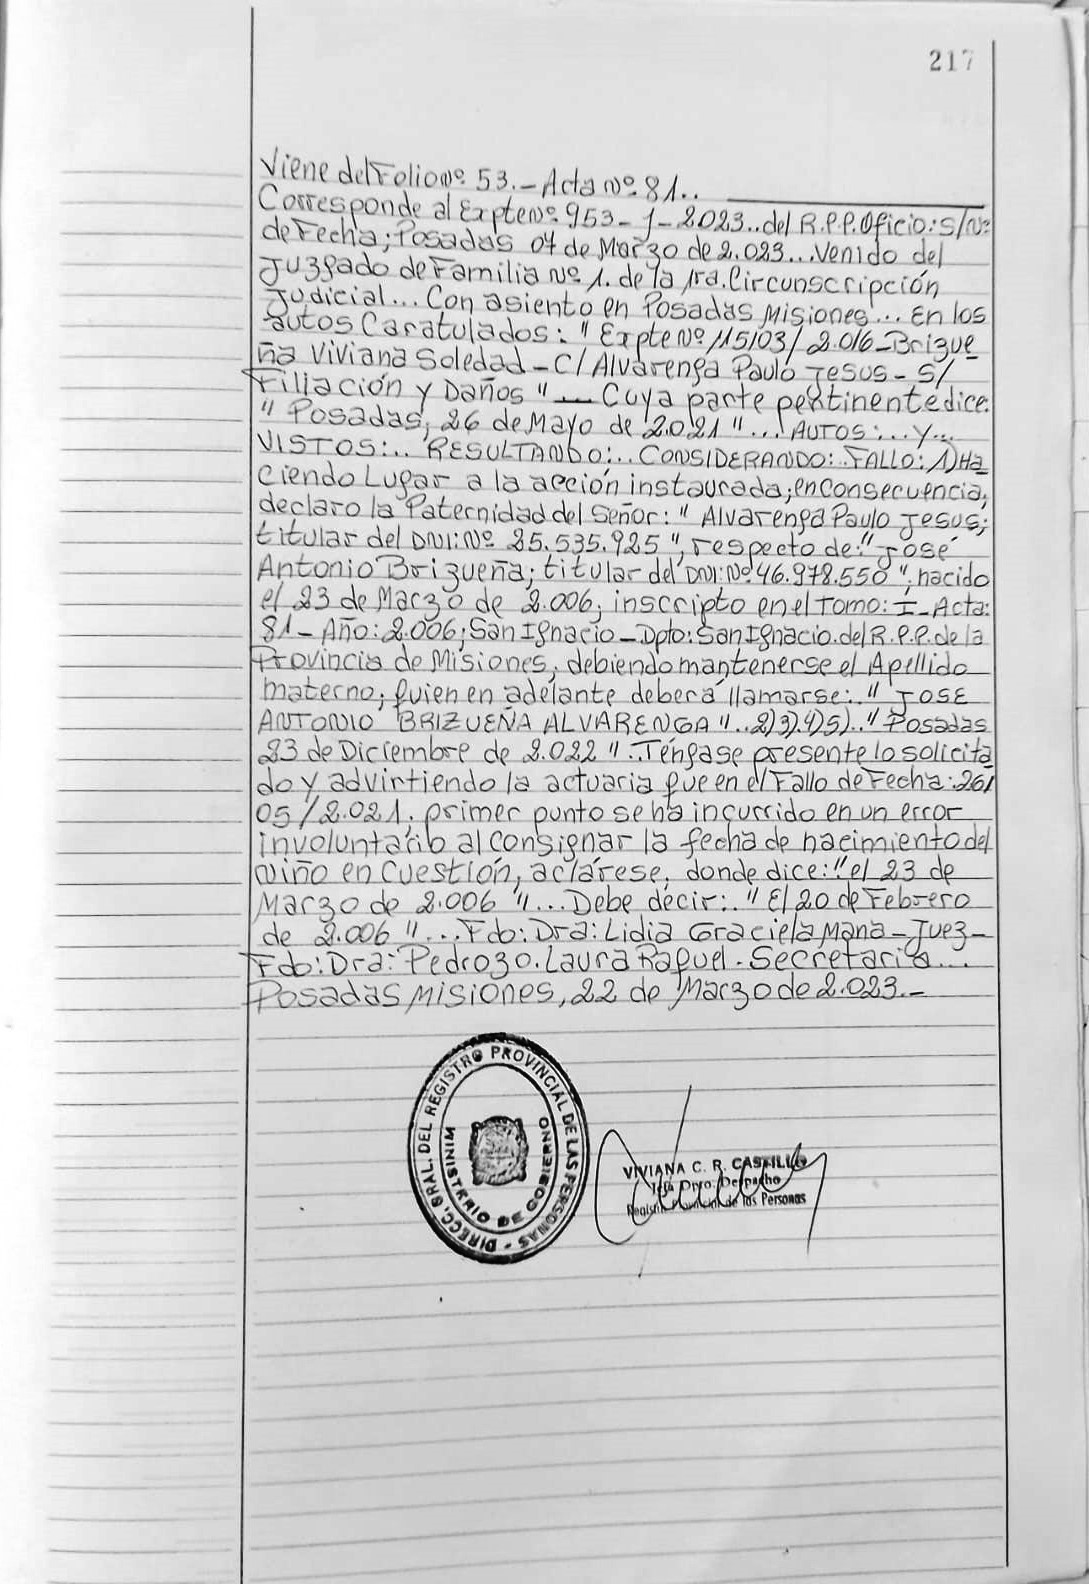 217
Viene del Folio Nº 53.- Acta Nº 81..
Corresponde al Expte Nº 953-J-2023.. del R.P.P. Oficio: S/Nº
de Fecha; Posadas 07 de Marzo de 2.023... Venido del
Juzgado de Familia Nº 1. de la 1ra. Circunscripción
Judicial... Con asiento en Posadas Misiones... En los
autos Caratulados: "Expte Nº 115103/2.016-Brizue
ña Viviana Soledad-C/Alvarenga Paulo Jesus-S/
Filiación y Daños"... Cuya parte pertinente dice:
"Posadas, 26 de Mayo de 2.021"... AUTOS:... Y...
VISTOS:.. RESULTANDO:.. CONSIDERANDO:.. FALLO: 1) Ha
ciendo Lugar a la acción instaurada; en consecuencia,
declaro la Paternidad del Señor: "Alvarenga Paulo Jesus;
titular del DNI: Nº 25.535.925", respecto de: "José
Antonio Brizueña; titular del DNI: Nº 46.978.550"; nacido
el 23 de Marzo de 2.006; inscripto en el Tomo: I-Acta:
81-Año: 2.006; San Ignacio-Dpto: San Ignacio. del R.P.P. de la
Provincia de Misiones, debiendo mantenerse el Apellido
materno; quien en adelante deberá llamarse: "JOSE
ANTONIO BRIZUEÑA ALVARENGA".. 2) 3) 4) 5).. "Posadas
23 de Diciembre de 2.022".. Téngase presente lo solicita
do y advirtiendo la actuaria que en el Fallo de Fecha: 26/
05/2.021. primer punto se ha incurrido en un error
involuntario al consignar la fecha de nacimiento del
niño en cuestión, aclárese, donde dice: "el 23 de
Marzo de 2.006"... Debe decir: "El 20 de Febrero
de 2.006"... Fdo: Dra: Lidia Graciela Mana-Juez-
Fdo: Dra: Pedrozo. Laura Raquel. Secretaria...
Posadas Misiones, 22 de Marzo de 2.023.-
DIRECC. GRAL. DEL REGISTRO PROVINCIAL DE LAS PERSONAS -
MINISTERIO DE GOBIERNO
VIVIANA C. R. CASTILLO
Jefa Dpto. Despacho
Registro Provincial de las Personas